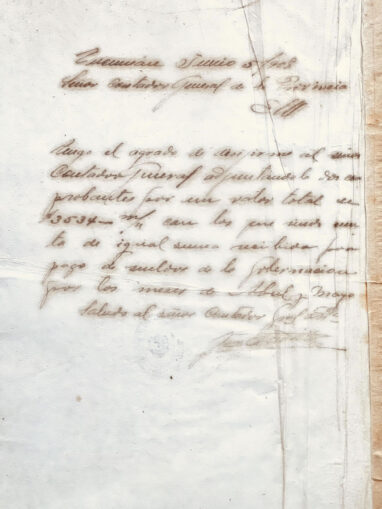 Tucumán Junio
Señor Contador General de la Provincia
S/D
Tengo el agrado de dirijirme al señor
Contador General adjuntando dos com
probantes por un valor total de
$3534 m/n con los que
ta de igual suma recibida por
pago de sueldos de la Gobernación
por los meses de Abril y Mayo
Saludo al señor Contador Gral